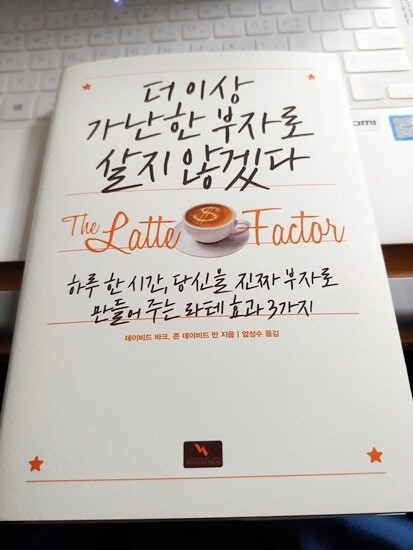 더 이상
가난한 부자로
살지 않겠다
The Latte Factor
하루 한 시간, 당신을 진짜 부자로
만들어 주는 라테 효과 3가지
데이비드 바크, 존 데이비드 만 지음 | 엄성수 옮김